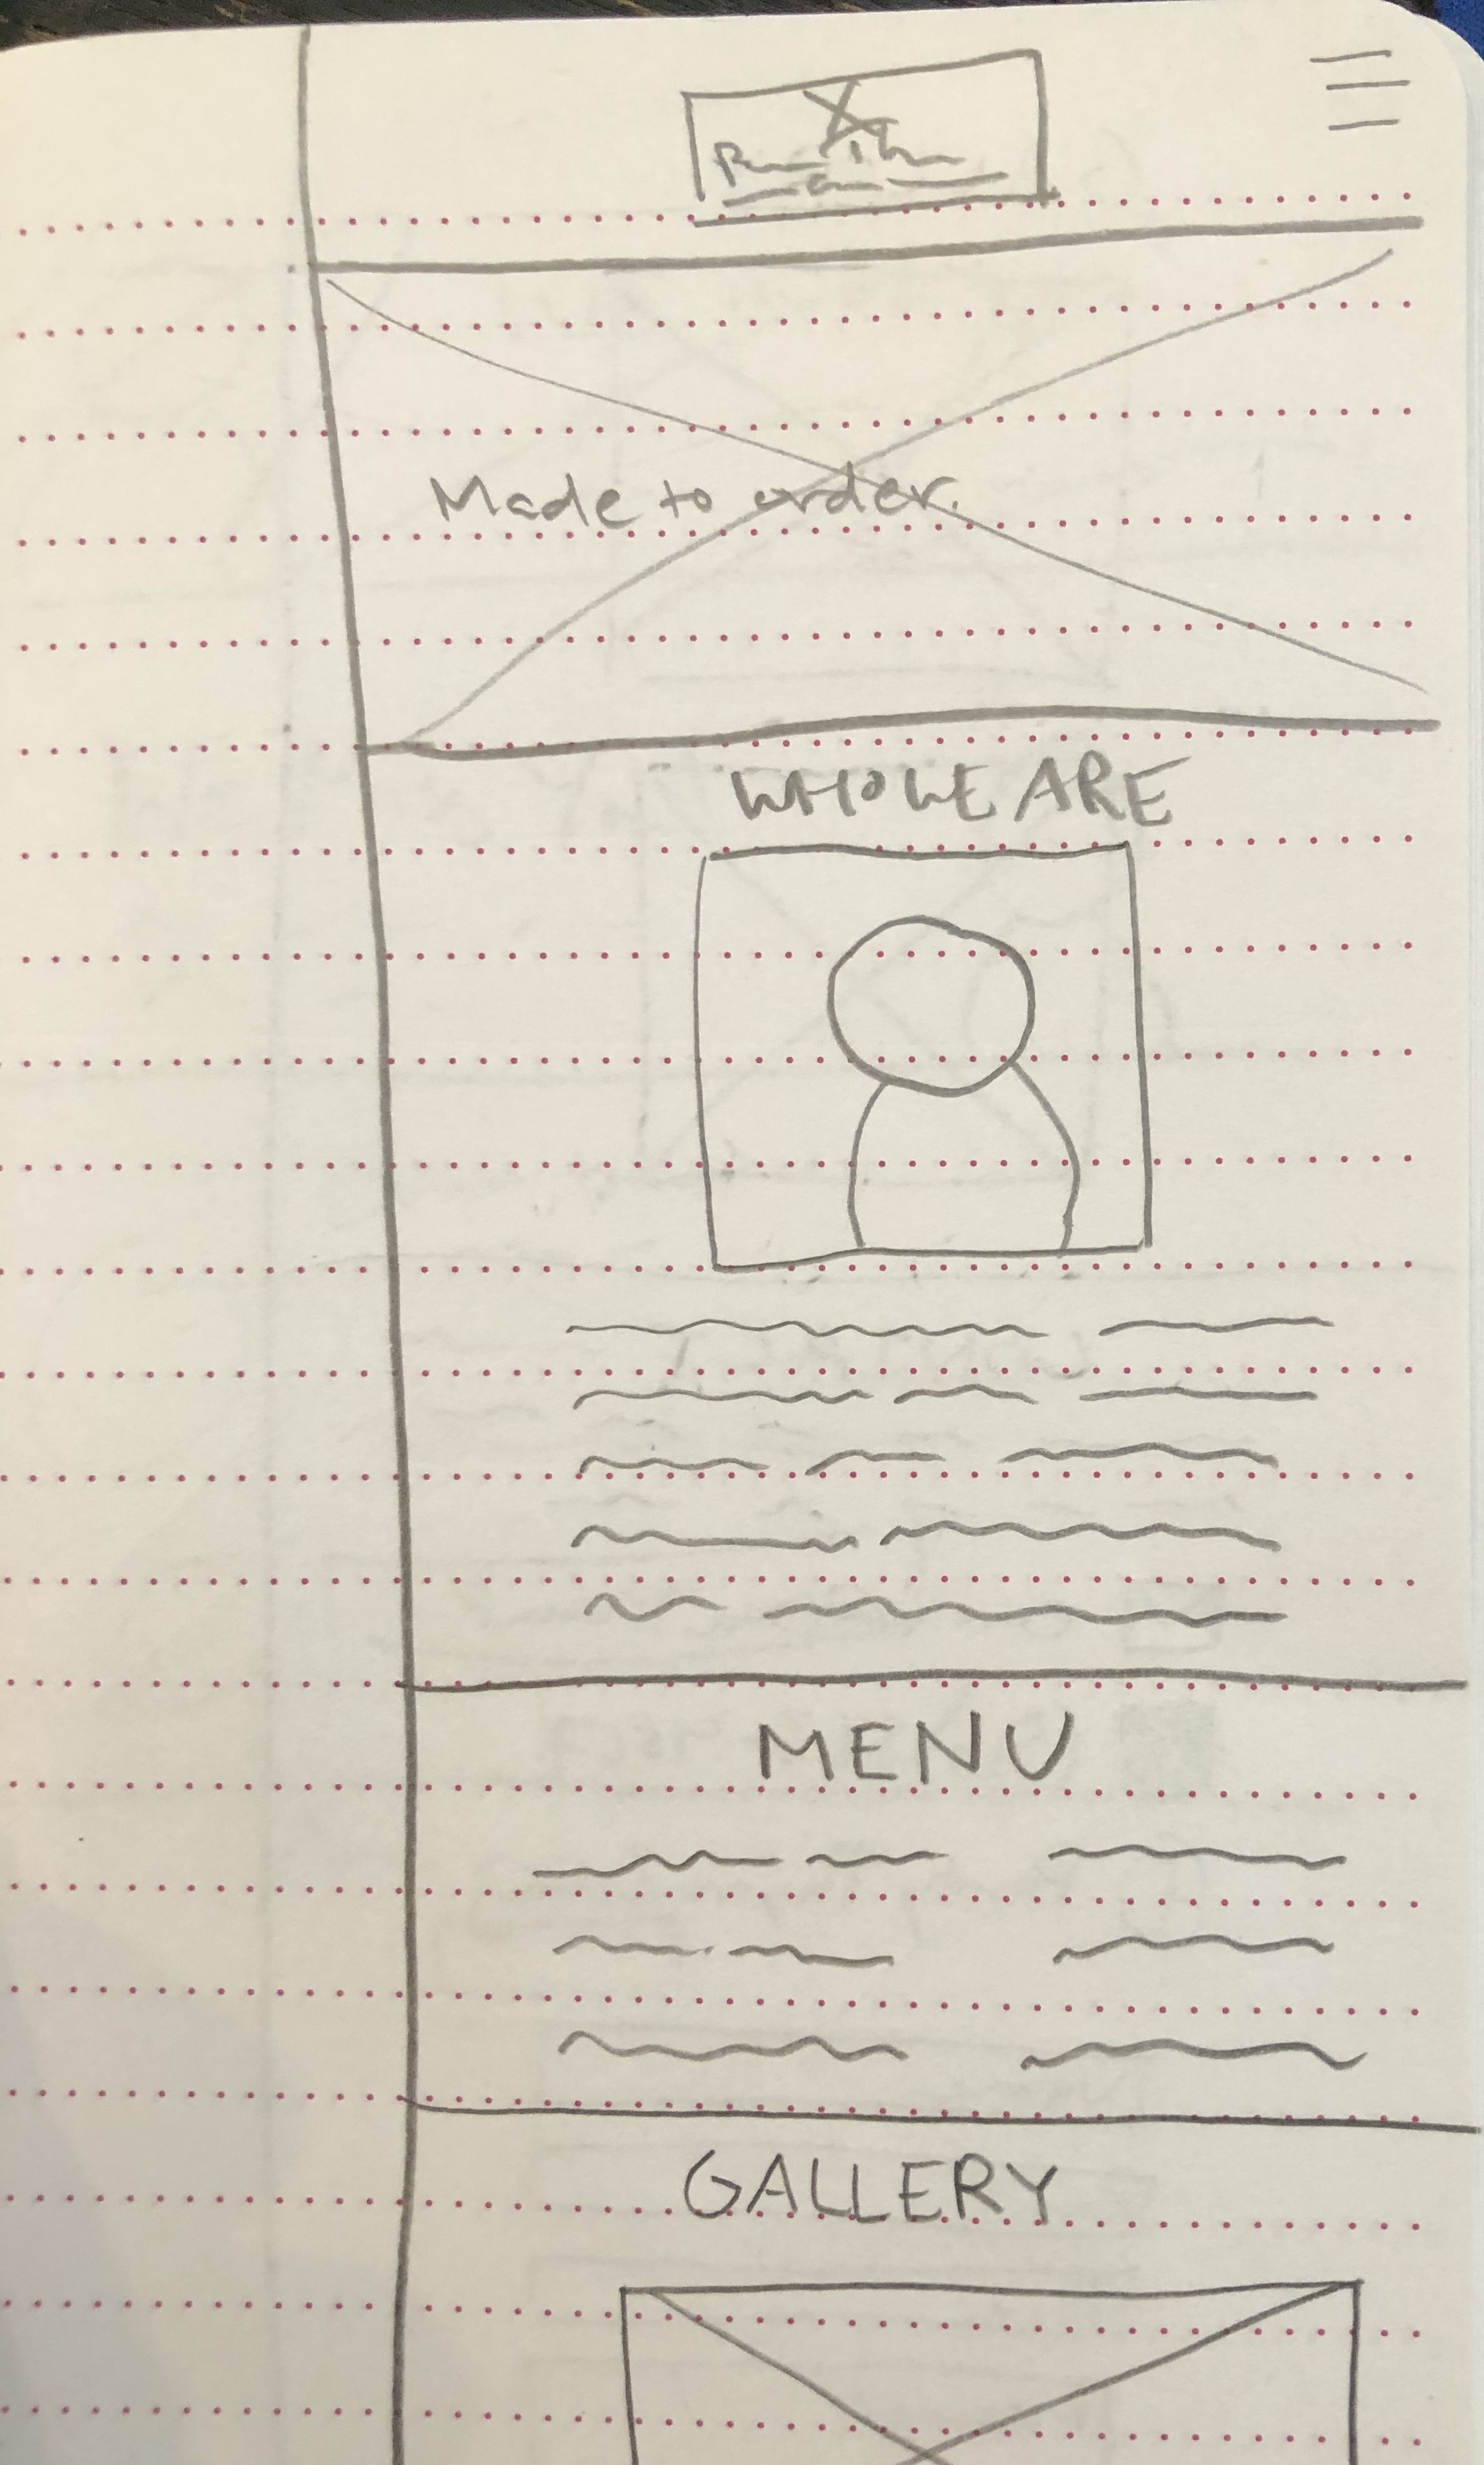 Made to order.
WHO WE ARE
MENU
GALLERY